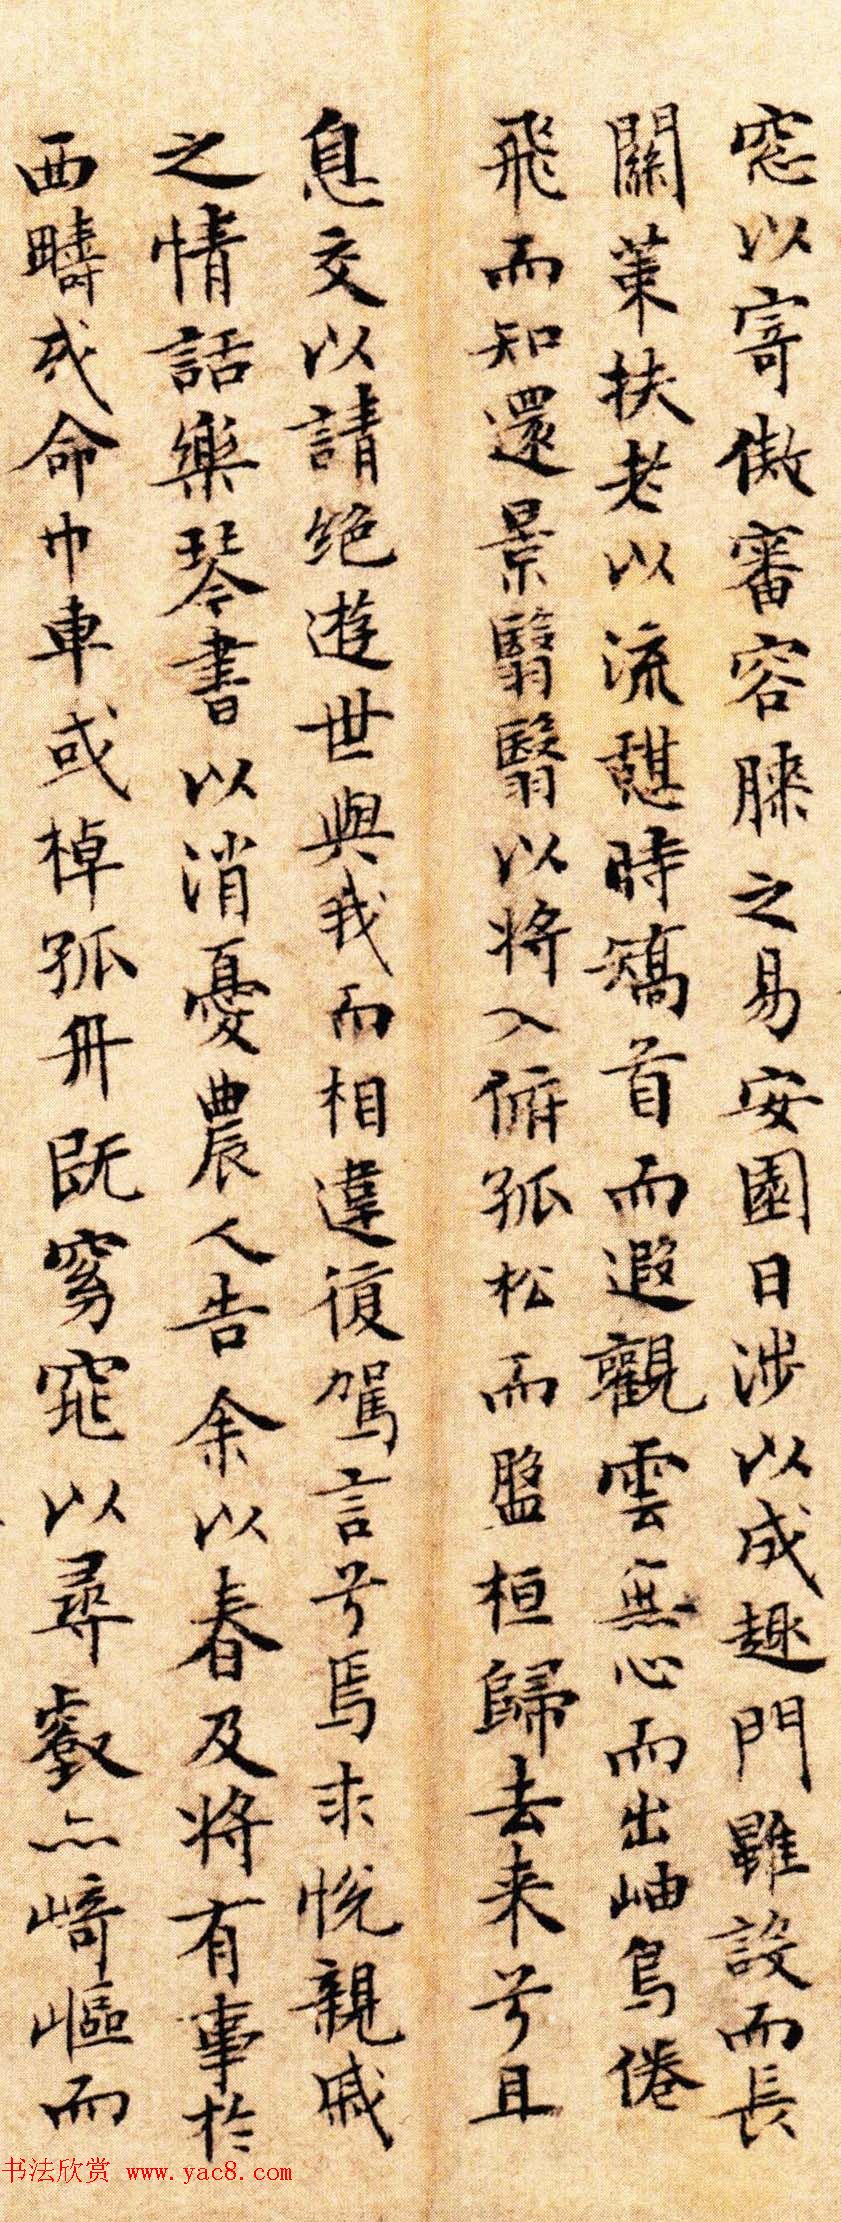 窓以寄傲審容膝之易安園日涉以成趣門雖設而長
關策扶老以流憩時矯首而遐觀雲無心而出岫鳥倦
飛而知還景翳翳以将入俯孤松而盤桓歸去来兮且
息交以請绝遊世與我而相違復駕言兮焉求悦親戚
之情話樂琴書以消憂農人告余以春及将有事於
西疇或命巾車或棹孤舟既窈窕以尋壑亦崎嶇而
书法欣赏 www.yac8.com